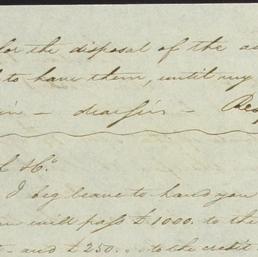 for the disposal of the
to have them, until my
in — dear Sir —
& Co.
I beg leave to hand you
will pass £1000. to the
and £250. .. to the credit